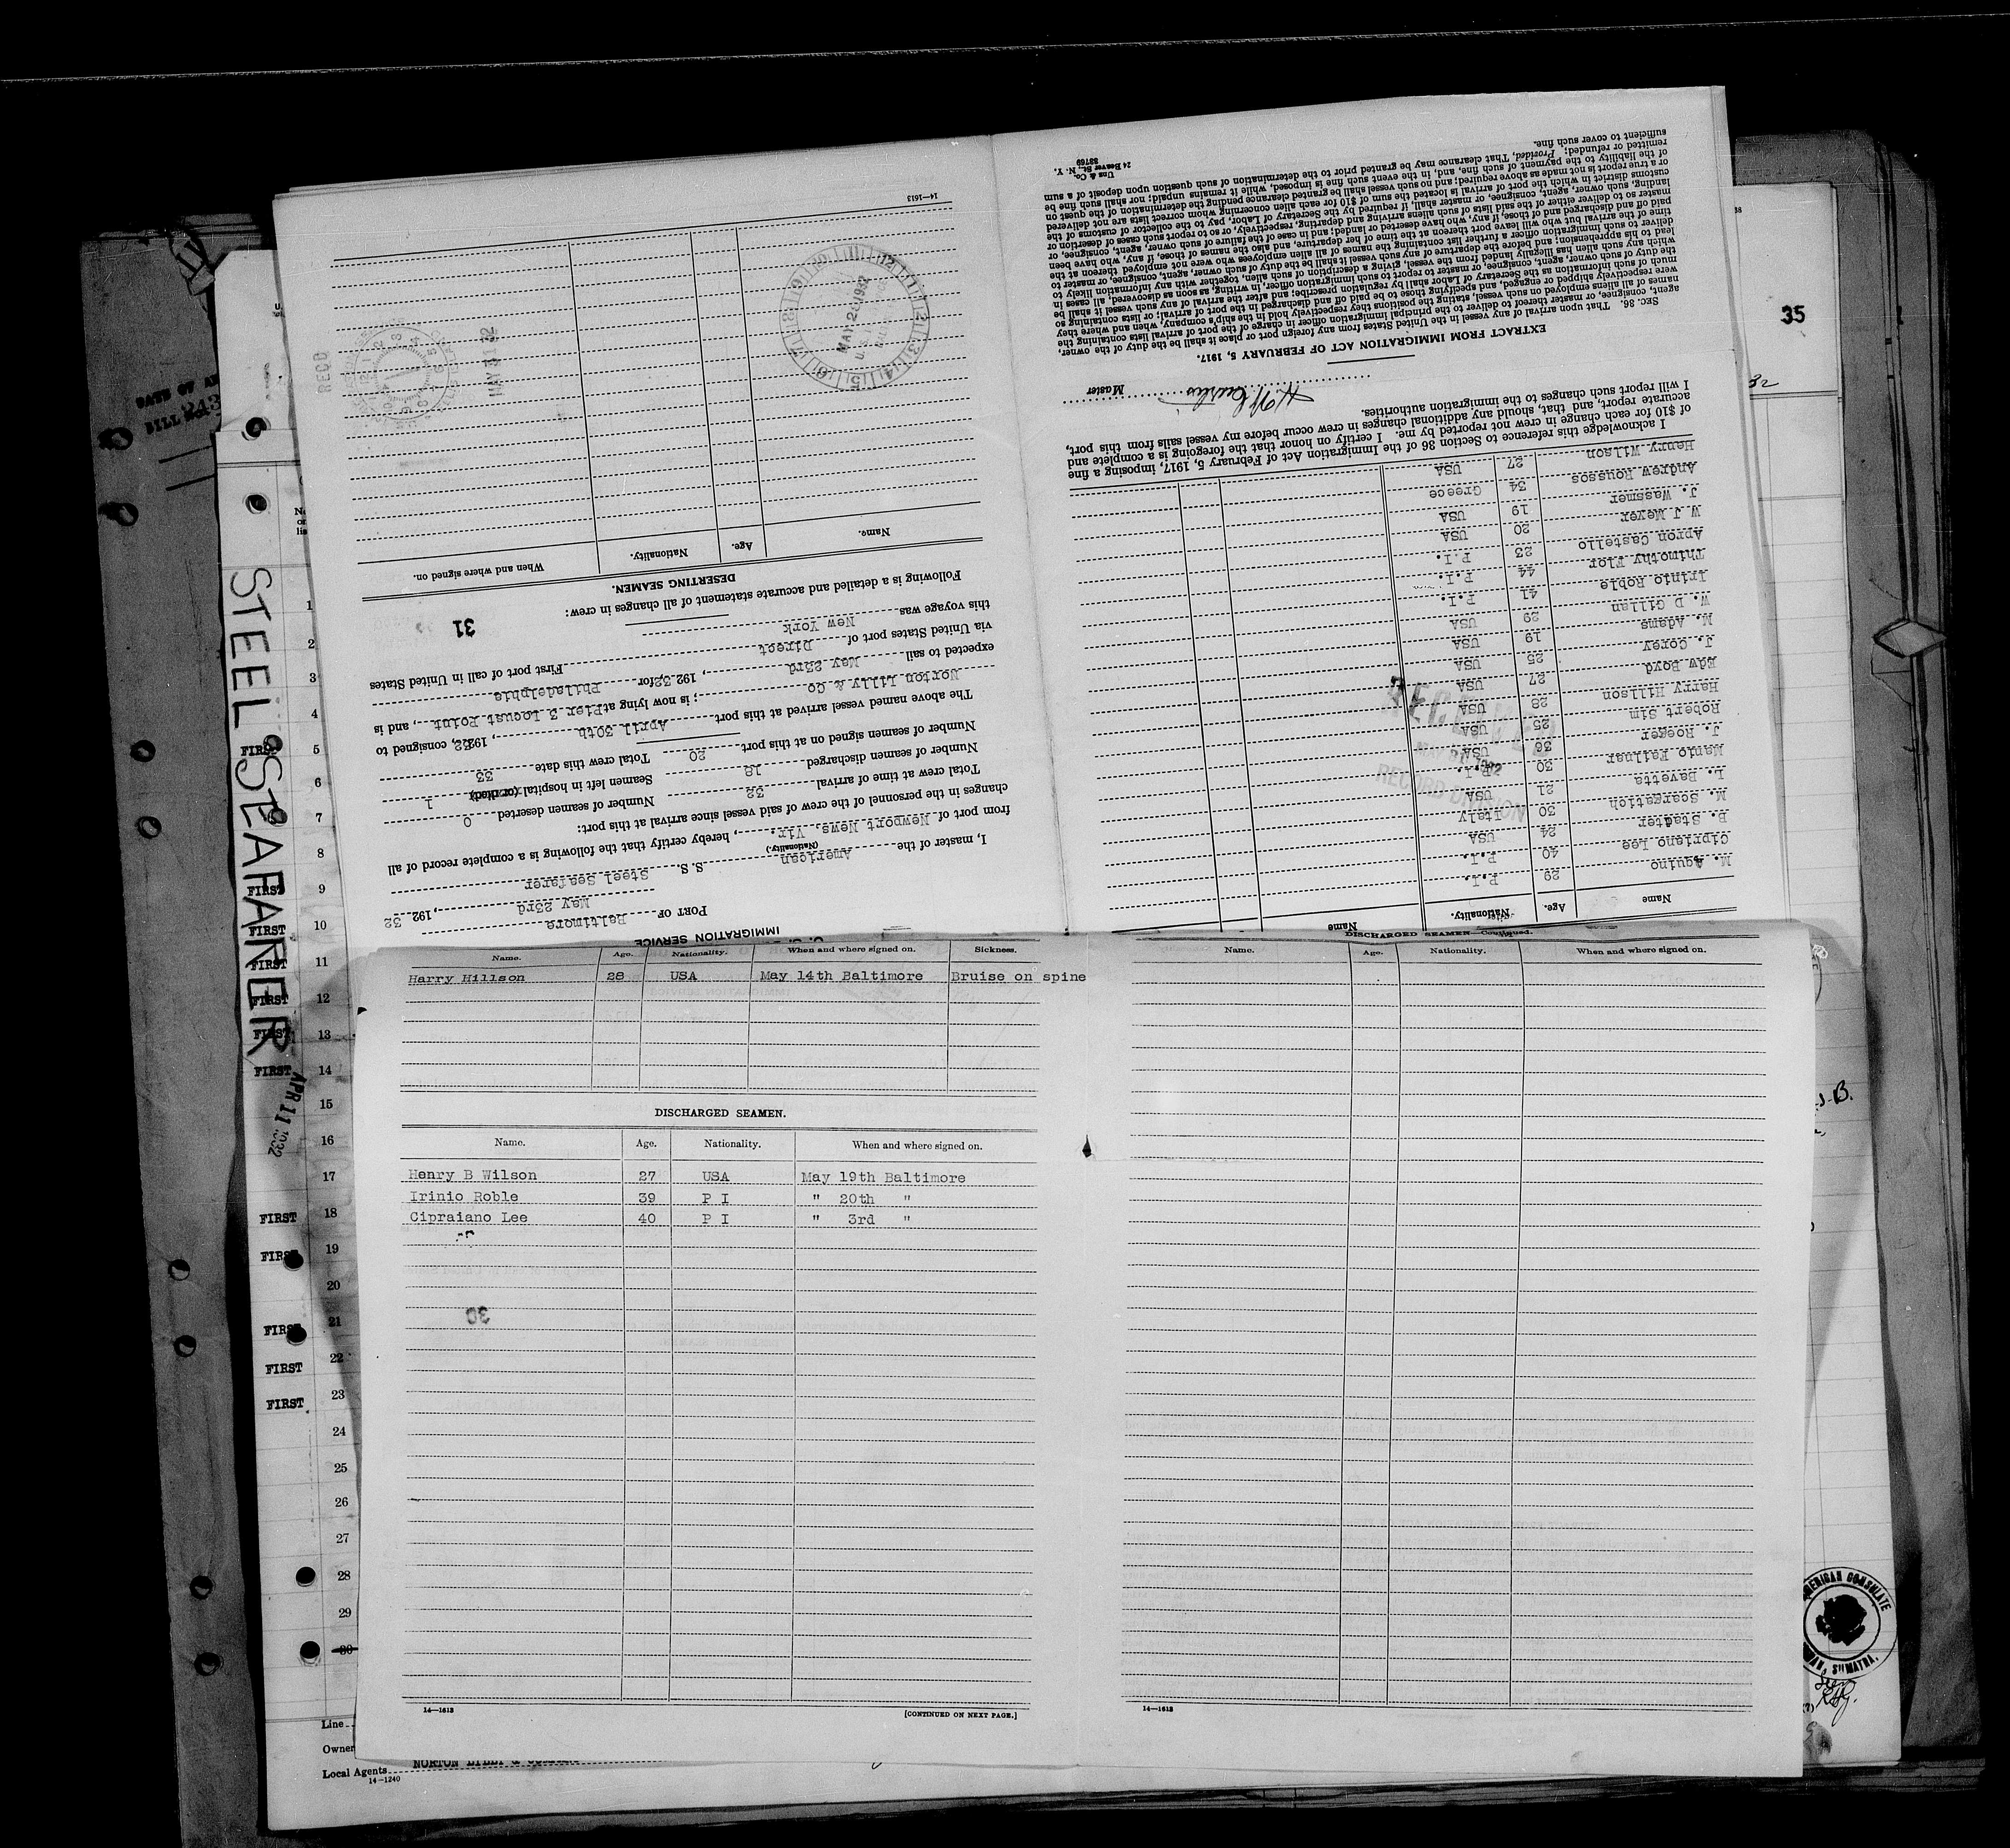 STEEL SEAFARER
APR 11 1932
35
IMMIGRATION SERVICE
PORT OF Baltimore
May 23rd, 192 32
I, master of the American S. S. Steel Seafarer
(Nationality.)
from port of Newport News, Vir., hereby certify that the following is a complete record of all
changes in the personnel of the crew of said vessel since arrival at this port:
Total crew at time of arrival 32 Number of seamen deserted 0
Number of seamen discharged 18 Seamen left in hospital 1
Number of seamen signed on at this port 20 Total crew this date 33
The above named vessel arrived at this port April 30th, 192 32, consigned to
Norton Lilly & Co; is now lying at Pier 3 Locust Point, and is
expected to sail May 23rd, 192 32, for Philadelphia
via United States port of Direct First port of call in United States
this voyage was New York
Following is a detailed and accurate statement of all changes in crew:
31
DESERTING SEAMEN.
Name. Age. Nationality. When and where signed on.
REC'D
MAY 31 32
MAY 28 1932
14—1613
Name Age. Nationality. Name
M. Aquino 29 P.I.
Cipriano Lee 40 P.I.
P. Stadter 24 USA
M. Scargatich 30 Italy
L. Bavetta 21 USA
Manio Failnar 30 P.I.
J. Roeger 36 USA
Robert Sim 25 USA
Harry Hillson 28 USA
Edw Boyd 27 USA
J. Corey 25 USA
M. Adams 19 USA
W. D Gillan 29 USA
Irinio Roble 41 P.I.
Thimothy Flor 44 P.I.
Apron Castello 23 P.I.
W J Meyer 20 USA
J. Wassmer 19 USA
Andrew Roussos 34 Greece
Henry Wilson 27 USA
RECEIVED
RECORD DIVISION
I acknowledge this reference to Section 36 of the Immigration Act of February 5, 1917, imposing a fine
of $10 for each change in crew not reported by me. I certify on honor that the foregoing is a complete and
accurate report, and that, should any additional changes in crew occur before my vessel sails from this port,
I will report such changes to the immigration authorities.
Master
EXTRACT FROM IMMIGRATION ACT OF FEBRUARY 5, 1917.
SEC. 36. That upon arrival of any vessel in the United States from any foreign port or place it shall be the duty of the owner,
agent, consignee, or master thereof to deliver to the principal immigration officer in charge of the port of arrival lists containing the
names of all aliens employed on such vessel, stating the positions they respectively hold in the ship's company, when and where they
were respectively shipped or engaged, and specifying those to be paid off and discharged in the port of arrival; or lists containing so
much of such information as the Secretary of Labor shall by regulation prescribe; and after the arrival of any such vessel it shall be
the duty of such owner, agent, consignee, or master to report to such immigration officer, in writing, as soon as discovered, all cases in
which any such alien has illegally landed from the vessel, giving a description of such alien, together with any information likely to
lead to his apprehension; and before the departure of any such vessel it shall be the duty of such owner, agent, consignee, or master to
deliver to such immigration officer a further list containing the names of all alien employees who were not employed thereon at the
time of the arrival but who will leave port thereon at the time of her departure, and also the names of those, if any, who have been
paid off and discharged and of those, if any, who have deserted or landed; and in case of the failure of such owner, agent, consignee, or
master so to deliver either of the said lists of such aliens arriving and departing, respectively, or so to report such cases of desertion or
landing, such owner, agent, consignee, or master, shall, if required by the Secretary of Labor, pay to the collector of customs of the
customs district in which the port of arrival is located the sum of $10 for each alien concerning whom correct lists are not delivered
or a true report is not made as above required; and no such vessel shall be granted clearance pending the determination of the quest on
of the liability to the payment of such fine, and, in the event such fine is imposed, while it remains unpaid; nor shall such fine be
remitted or refunded: Provided, That clearance may be granted prior to the determination of such question upon deposit of a sum
sufficient to cover such fine.
Unz & Co.
24 Beaver St., N. Y.
Name. Age. Nationality. When and where signed on. Sickness.
Harry Hillson 28 USA May 14th Baltimore Bruise on spine
DISCHARGED SEAMEN.
Name. Age. Nationality. When and where signed on.
Henry B Wilson 27 USA May 19th Baltimore
Irinio Roble 39 P I " 20th "
Cipraiano Lee 40 P I " 3rd "
30
14—1613
[CONTINUED ON NEXT PAGE.]
DISCHARGED SEAMEN—Continued.
Name. Age. Nationality. When and where signed on.
14—1613
1
2
3
4
FIRST 5
6
7
8
FIRST 9
FIRST 10
FIRST 11
FIRST 12
FIRST 13
FIRST 14
15
16
17
FIRST 18
FIRST 19
20
FIRST 21
FIRST 22
FIRST 23
24
25
26
27
28
29
30
Line
Owner
Local Agents NORTON LILLY &
14-1240
AMERICAN CONSULATE
SUMATRA.